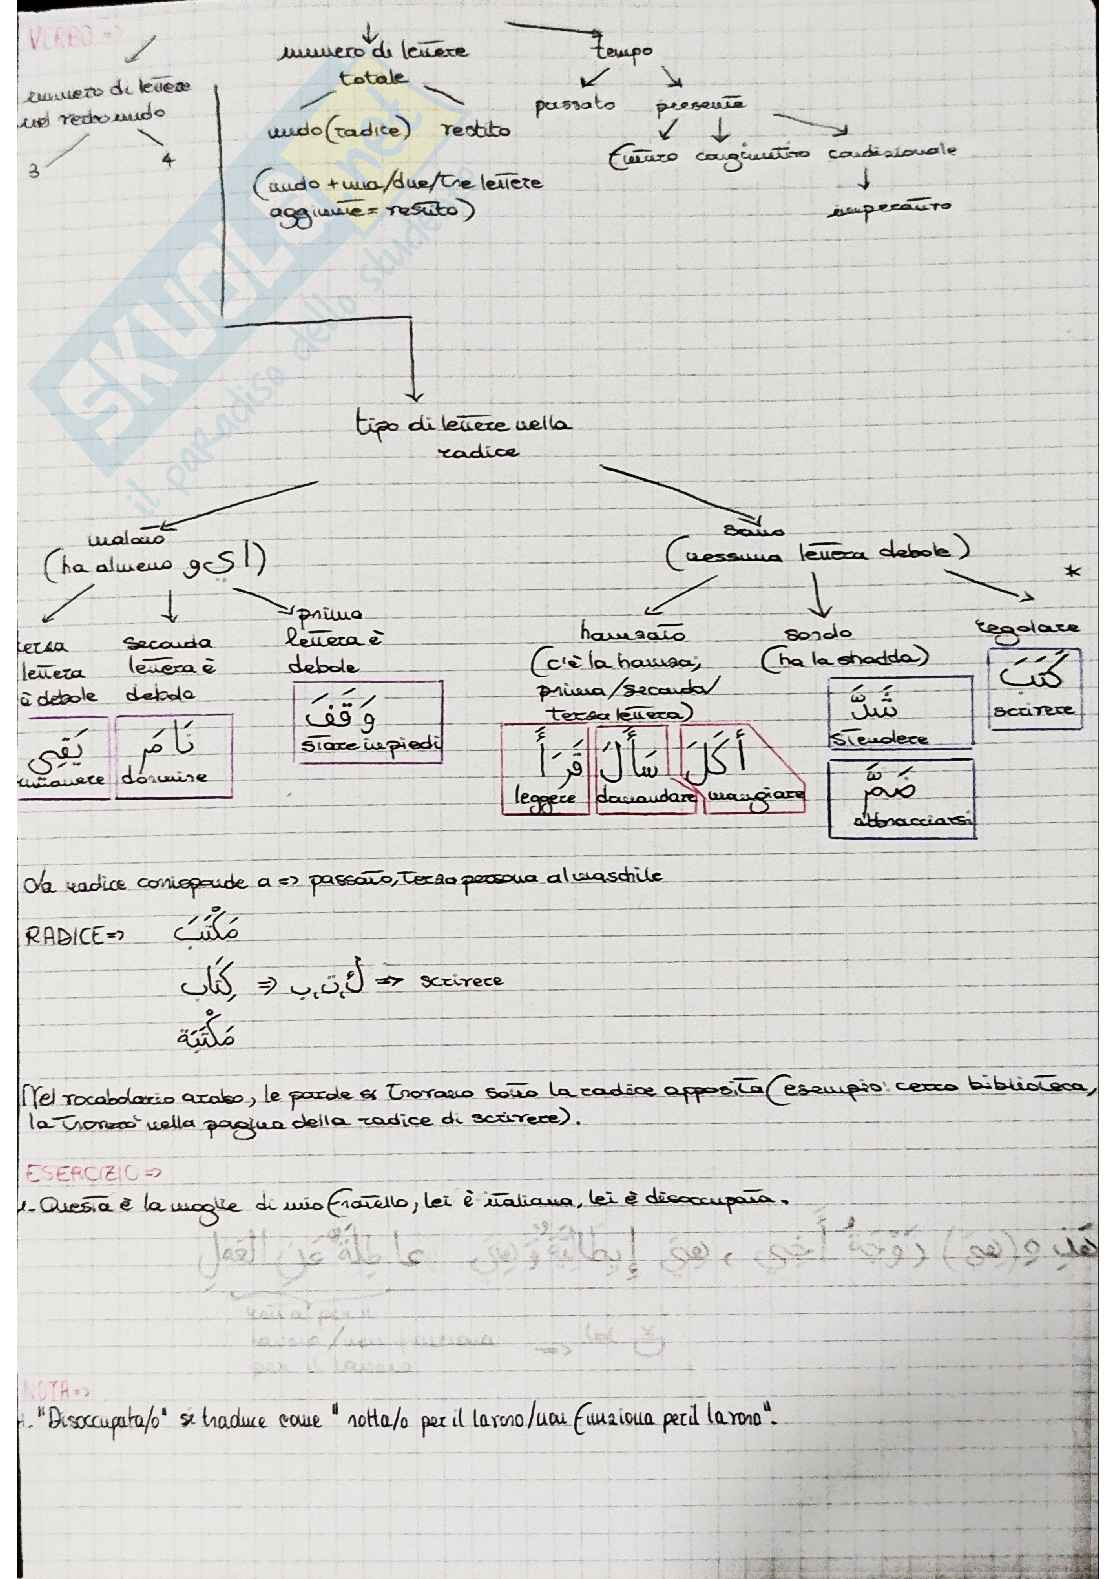 VERBO =>
numero di lettere
nel verbo nudo
3
4
numero di lettere
totale
nudo (radice)
vestito
(nudo + una/due/tre lettere
aggiunte = vestito)
tempo
passato
presente
futuro
congiuntivo
condizionale
imperativo
tipo di lettere nella
radice
malato
(ha almeno و ي ا)
terza
lettera
è debole
seconda
lettera è
debole
prima
lettera è
debole
نَامَ
dormire
وَقَفَ
stare in piedi
sano
(nessuna lettera debole)
*
hamzato
(c'è la hamza;
prima/seconda/
terza lettera)
قَرَأَ
leggere
سَأَلَ
domandare
أَكَلَ
mangiare
sordo
(ha la shadda)
stendere
ضَمَّ
abbracciarsi
regolare
كَتَبَ
scrivere
La radice corrisponde a => passato, terza persona al maschile
RADICE =>
مَكْتَبَ
كِتَاب => ك, ت, ب => scrivere
مَكْتَبَة
Nel vocabolario arabo, le parole si trovano sotto la radice apposita (esempio: cerco biblioteca,
la troverò nella pagina della radice di scrivere).
ESERCIZIO =>
1. Questa è la moglie di mio fratello, lei è italiana, lei è disoccupata.
هَذِهِ (هِيَ) زَوْجَةُ أَخِي، هِيَ إِيطَالِيَّةٌ وَهِيَ عَاطِلَةٌ عَنِ العَمَلِ
rotta per il
lavoro/non funziona
per il lavoro
NOTA =>
1. "Disoccupata/o" si traduce come "rotta/o per il lavoro/non funziona per il lavoro".
SKUOLA.net
il paradiso dello studente